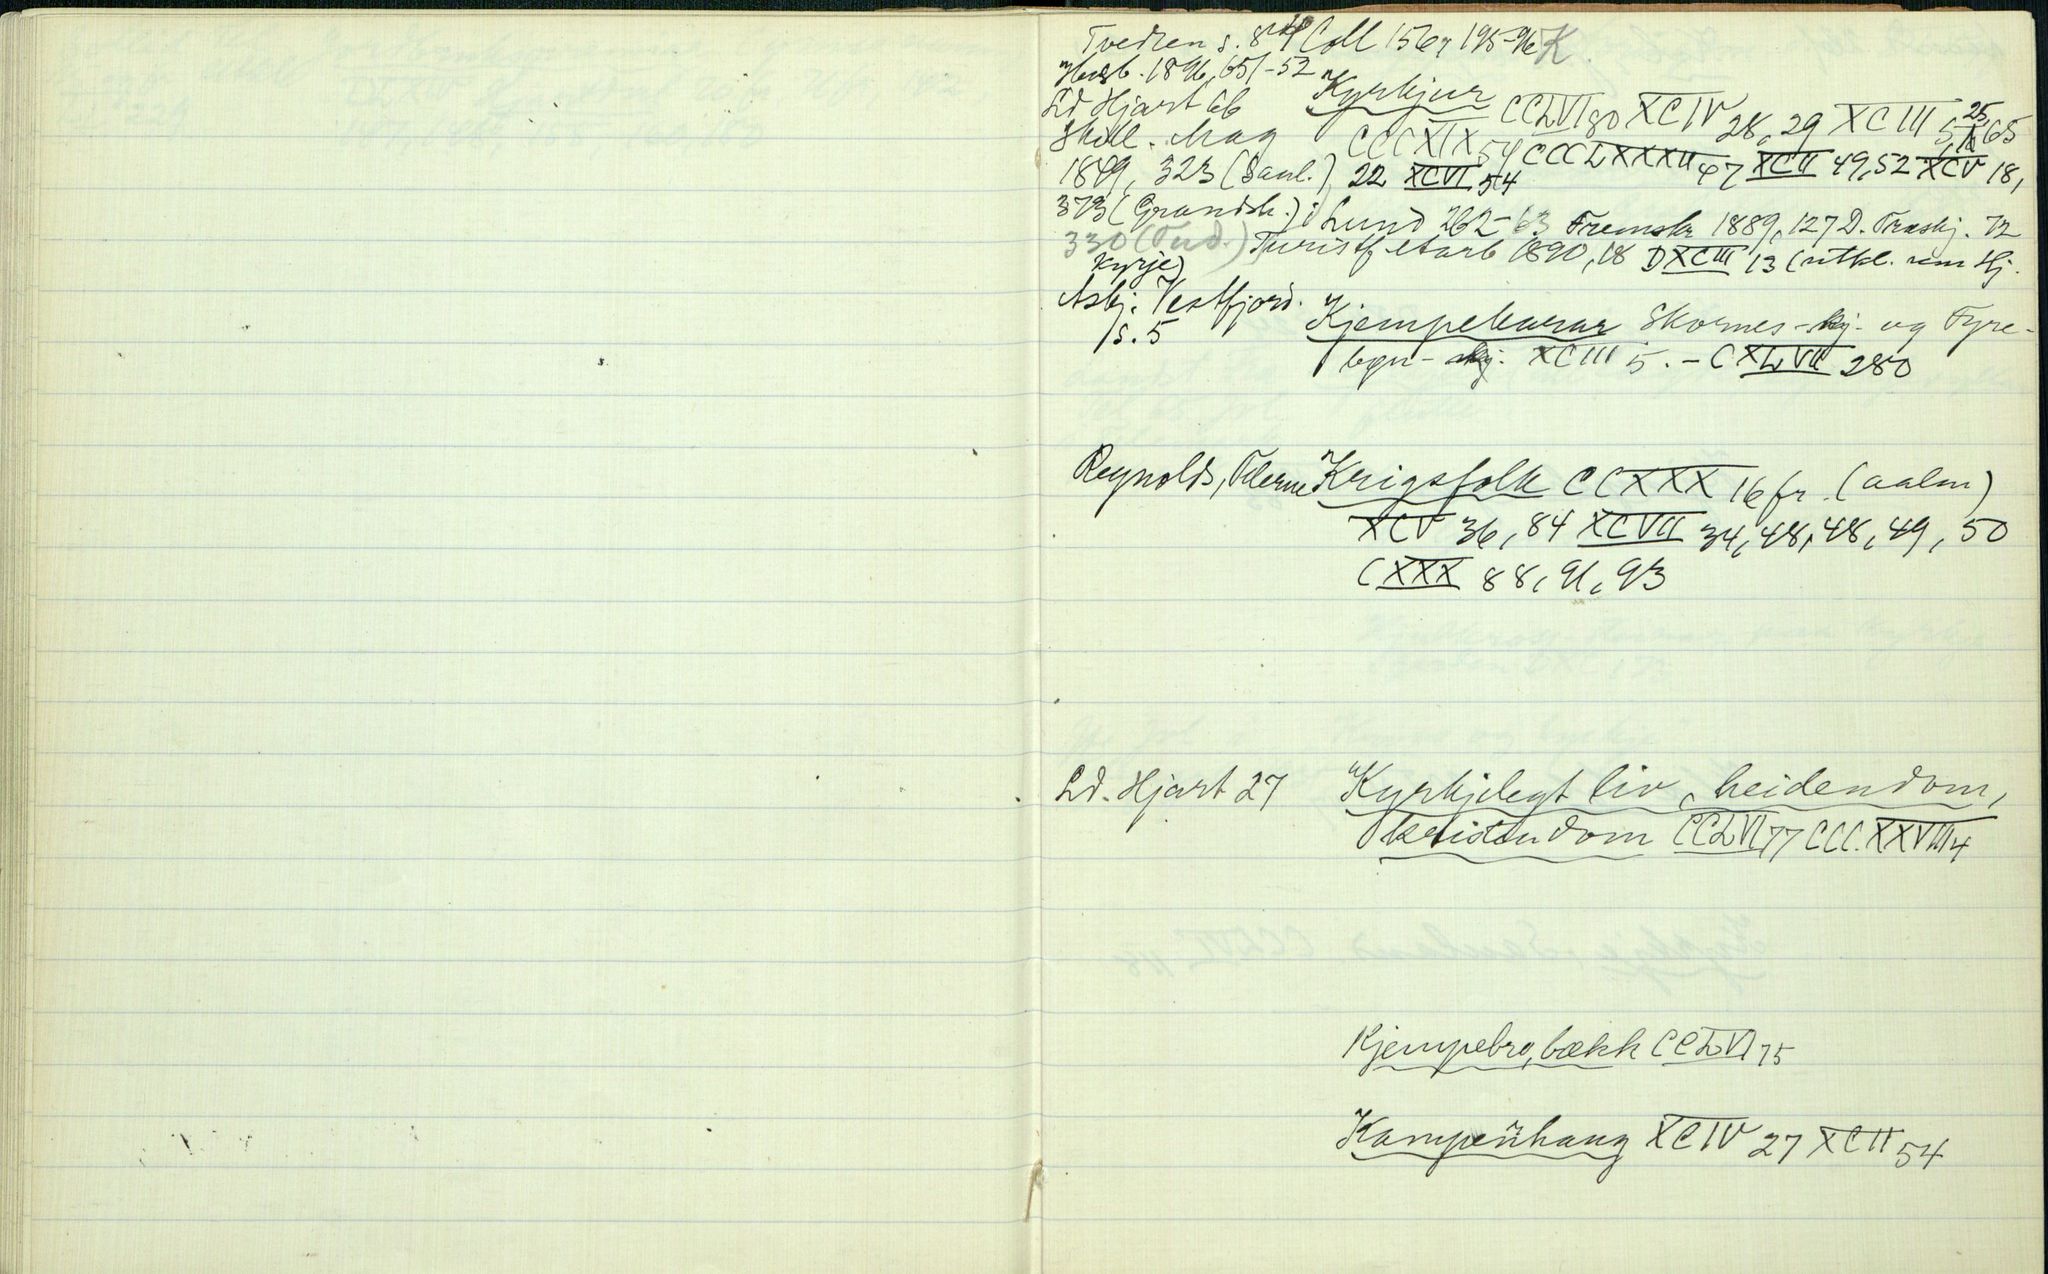 Tvedten s. 84 Coll 156, 195-96 K.
1896, 651-52
Ld Hjart 66 Kyrkjur CCLVI 80 XCIV 28, 29 XCIII 5, 25, 65
Skill. Mag CCCXIX 54 CCCLXXXII 47 XCII 49, 52 XCV 18,
1849, 323 (Saul.) 22 XCVI 54
373 (Gransh.) i Lund 262-63 Fremskr 1889, 127 D. 72
330 (Tud.) Turistf 1890, 18 DXCIII 13 (utkl. um Hj.
kyrje)
Asbj. Vestfjord. Kjempekarar Skornes-kj. og Fyre-
s. 5 kj. XCIII 5. - CXLVII 280
Reynolds, Krigsfolk CCXXX 16 fr. (aalm)
XCV 36, 84 XCVII 34, 48, 48, 49, 50
CXXX 88, 91, 93
Ld. Hjart 27 Kyrkjelegt liv, heidendom,
kristendom CCLVI 77 CCCXXVIII 4
Kjempebro, bækk CCLVI 75
Kampenhaug XCIV 27 XCII 54